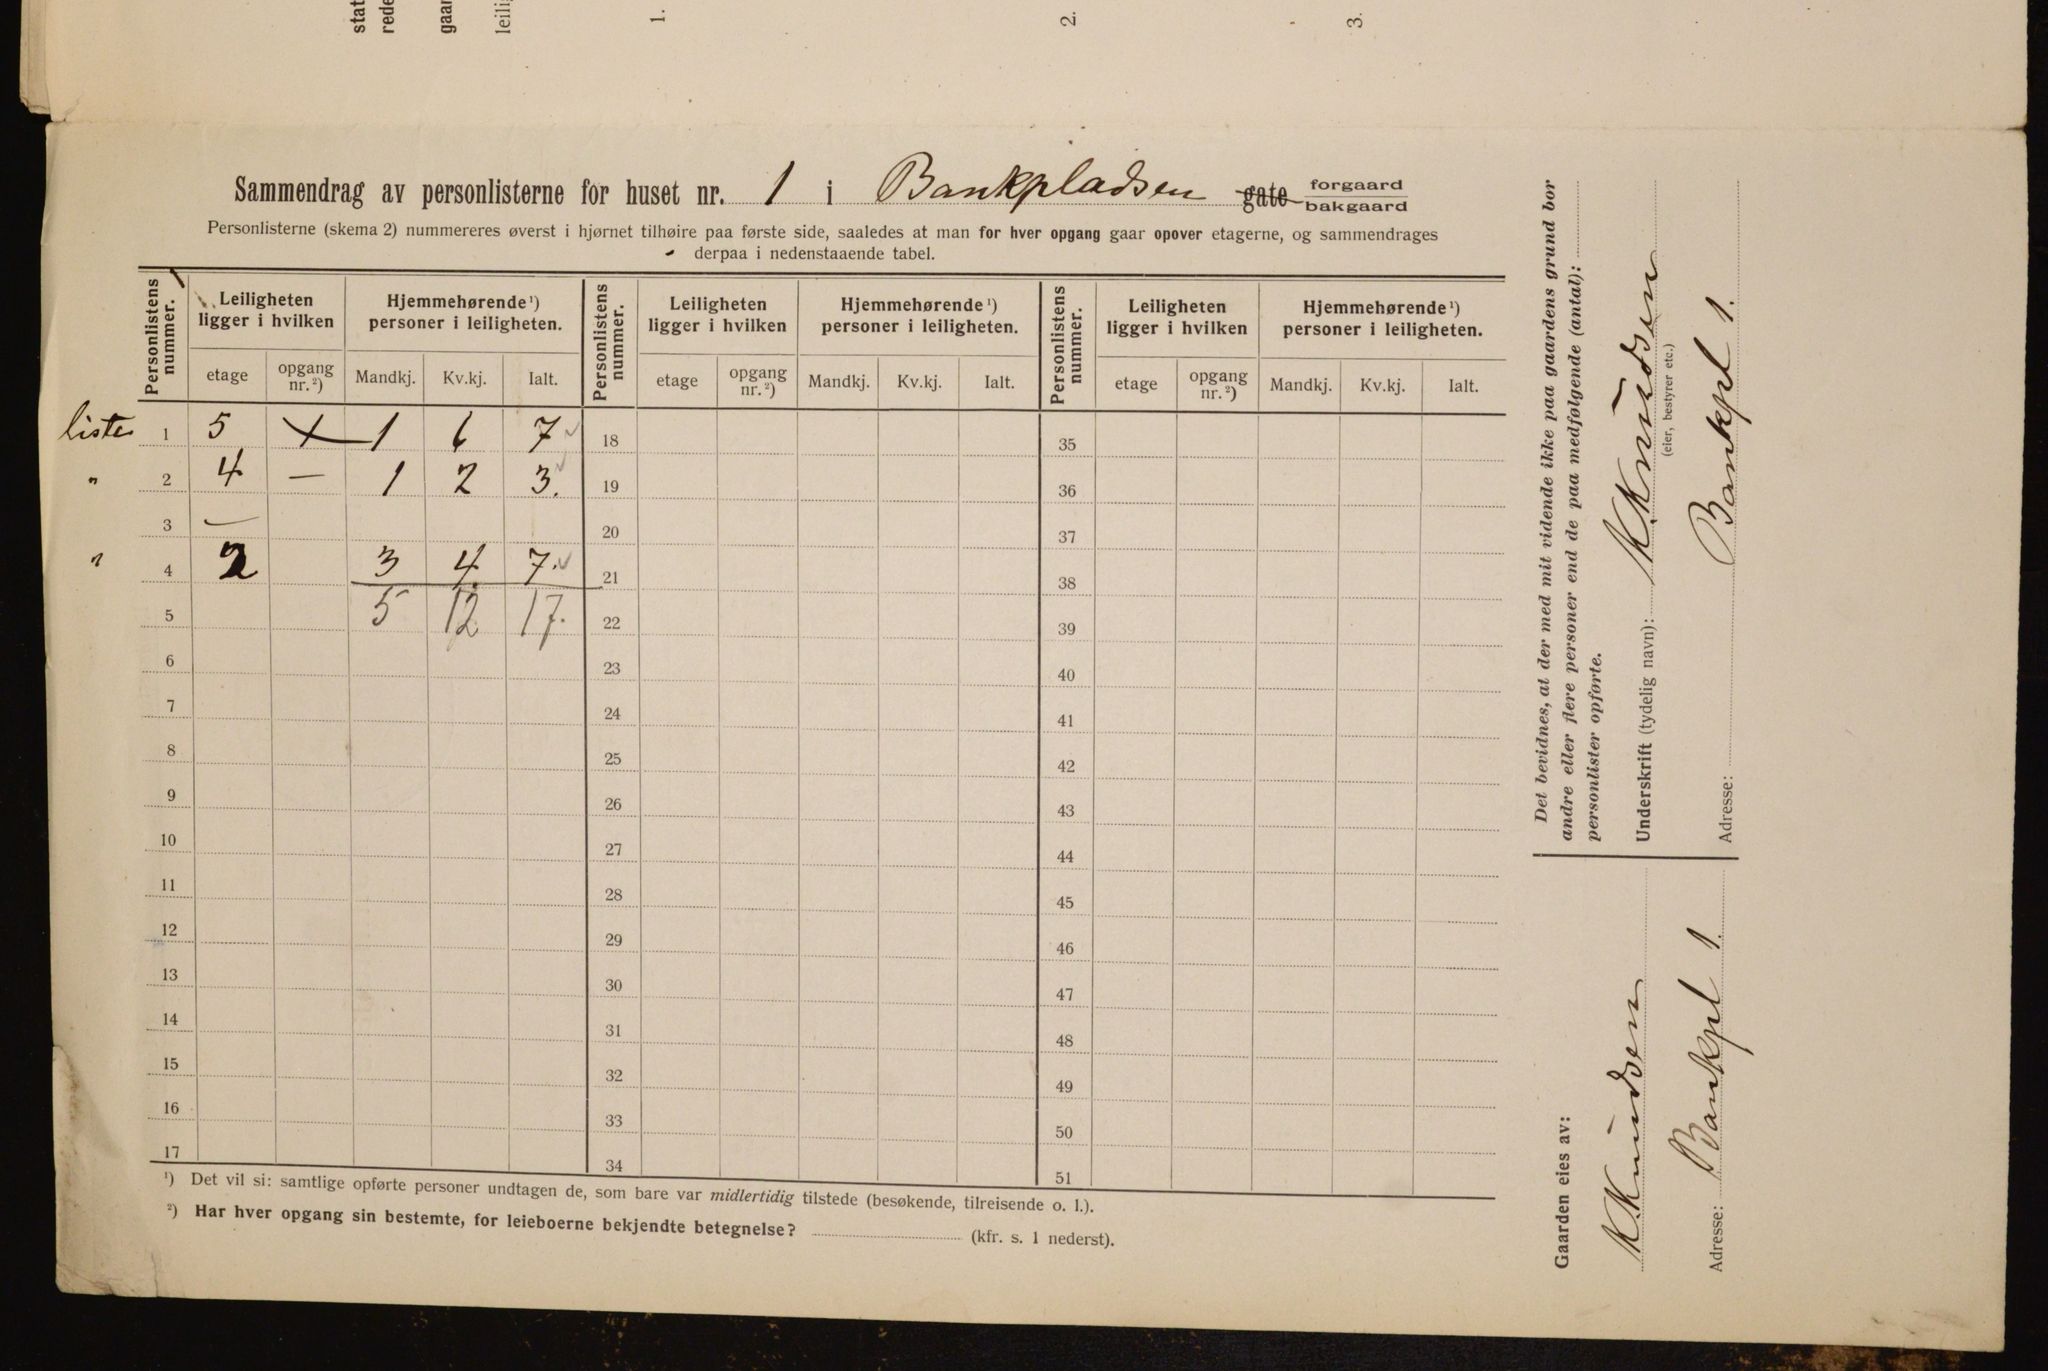 stat
rede
gaar
leilig
1.
2.
3.
Sammendrag av personlisterne for huset nr. 1 i Bankpladsen gate forgaard
bakgaard
Personlisterne (skema 2) nummereres øverst i hjørnet tilhøire paa første side, saaledes at man for hver opgang gaar opover etagerne, og sammendrages
derpaa i nedenstaaende tabel.
Personlistens nummer. Leiligheten ligger i hvilken Hjemmehørende ¹) personer i leiligheten. Personlistens nummer. Leiligheten ligger i hvilken Hjemmehørende ¹) personer i leiligheten. Personlistens nummer. Leiligheten ligger i hvilken Hjemmehørende ¹) personer i leiligheten.
etage opgang nr. ²) Mandkj. Kv.kj. Ialt. etage opgang nr. ²) Mandkj. Kv.kj. Ialt. etage opgang nr. ²) Mandkj. Kv.kj. Ialt.
liste 1 5 + 1 6 7 18 35
" 2 4 — 1 2 3. 19 36
3 — 20 37
" 4 2 3 4. 7. 21 38
5 5 12 17. 22 39
6 23 40
7 24 41
8 25 42
9 26 43
10 27 44
11 28 45
12 29 46
13 30 47
14 31 48
15 32 49
16 33 50
17 34 51
¹) Det vil si: samtlige opførte personer undtagen de, som bare var midlertidig tilstede (besøkende, tilreisende o. l.).
²) Har hver opgang sin bestemte, for leieboerne bekjendte betegnelse? (kfr. s. 1 nederst).
Det bevidnes, at der med mit vidende ikke paa gaardens grund bor
andre eller flere personer end de paa medfølgende (antal):
personlister opførte.
Underskrift (tydelig navn): K. Knudsen
(eier, bestyrer etc.)
Adresse: Bankpl 1.
Gaarden eies av:
K. Knudsen
Adresse: Bankpl 1.